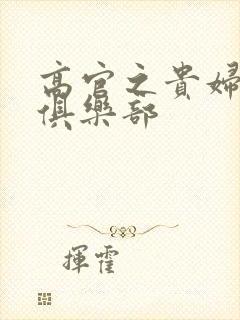 高官之貴婦
俱樂部
揮霍